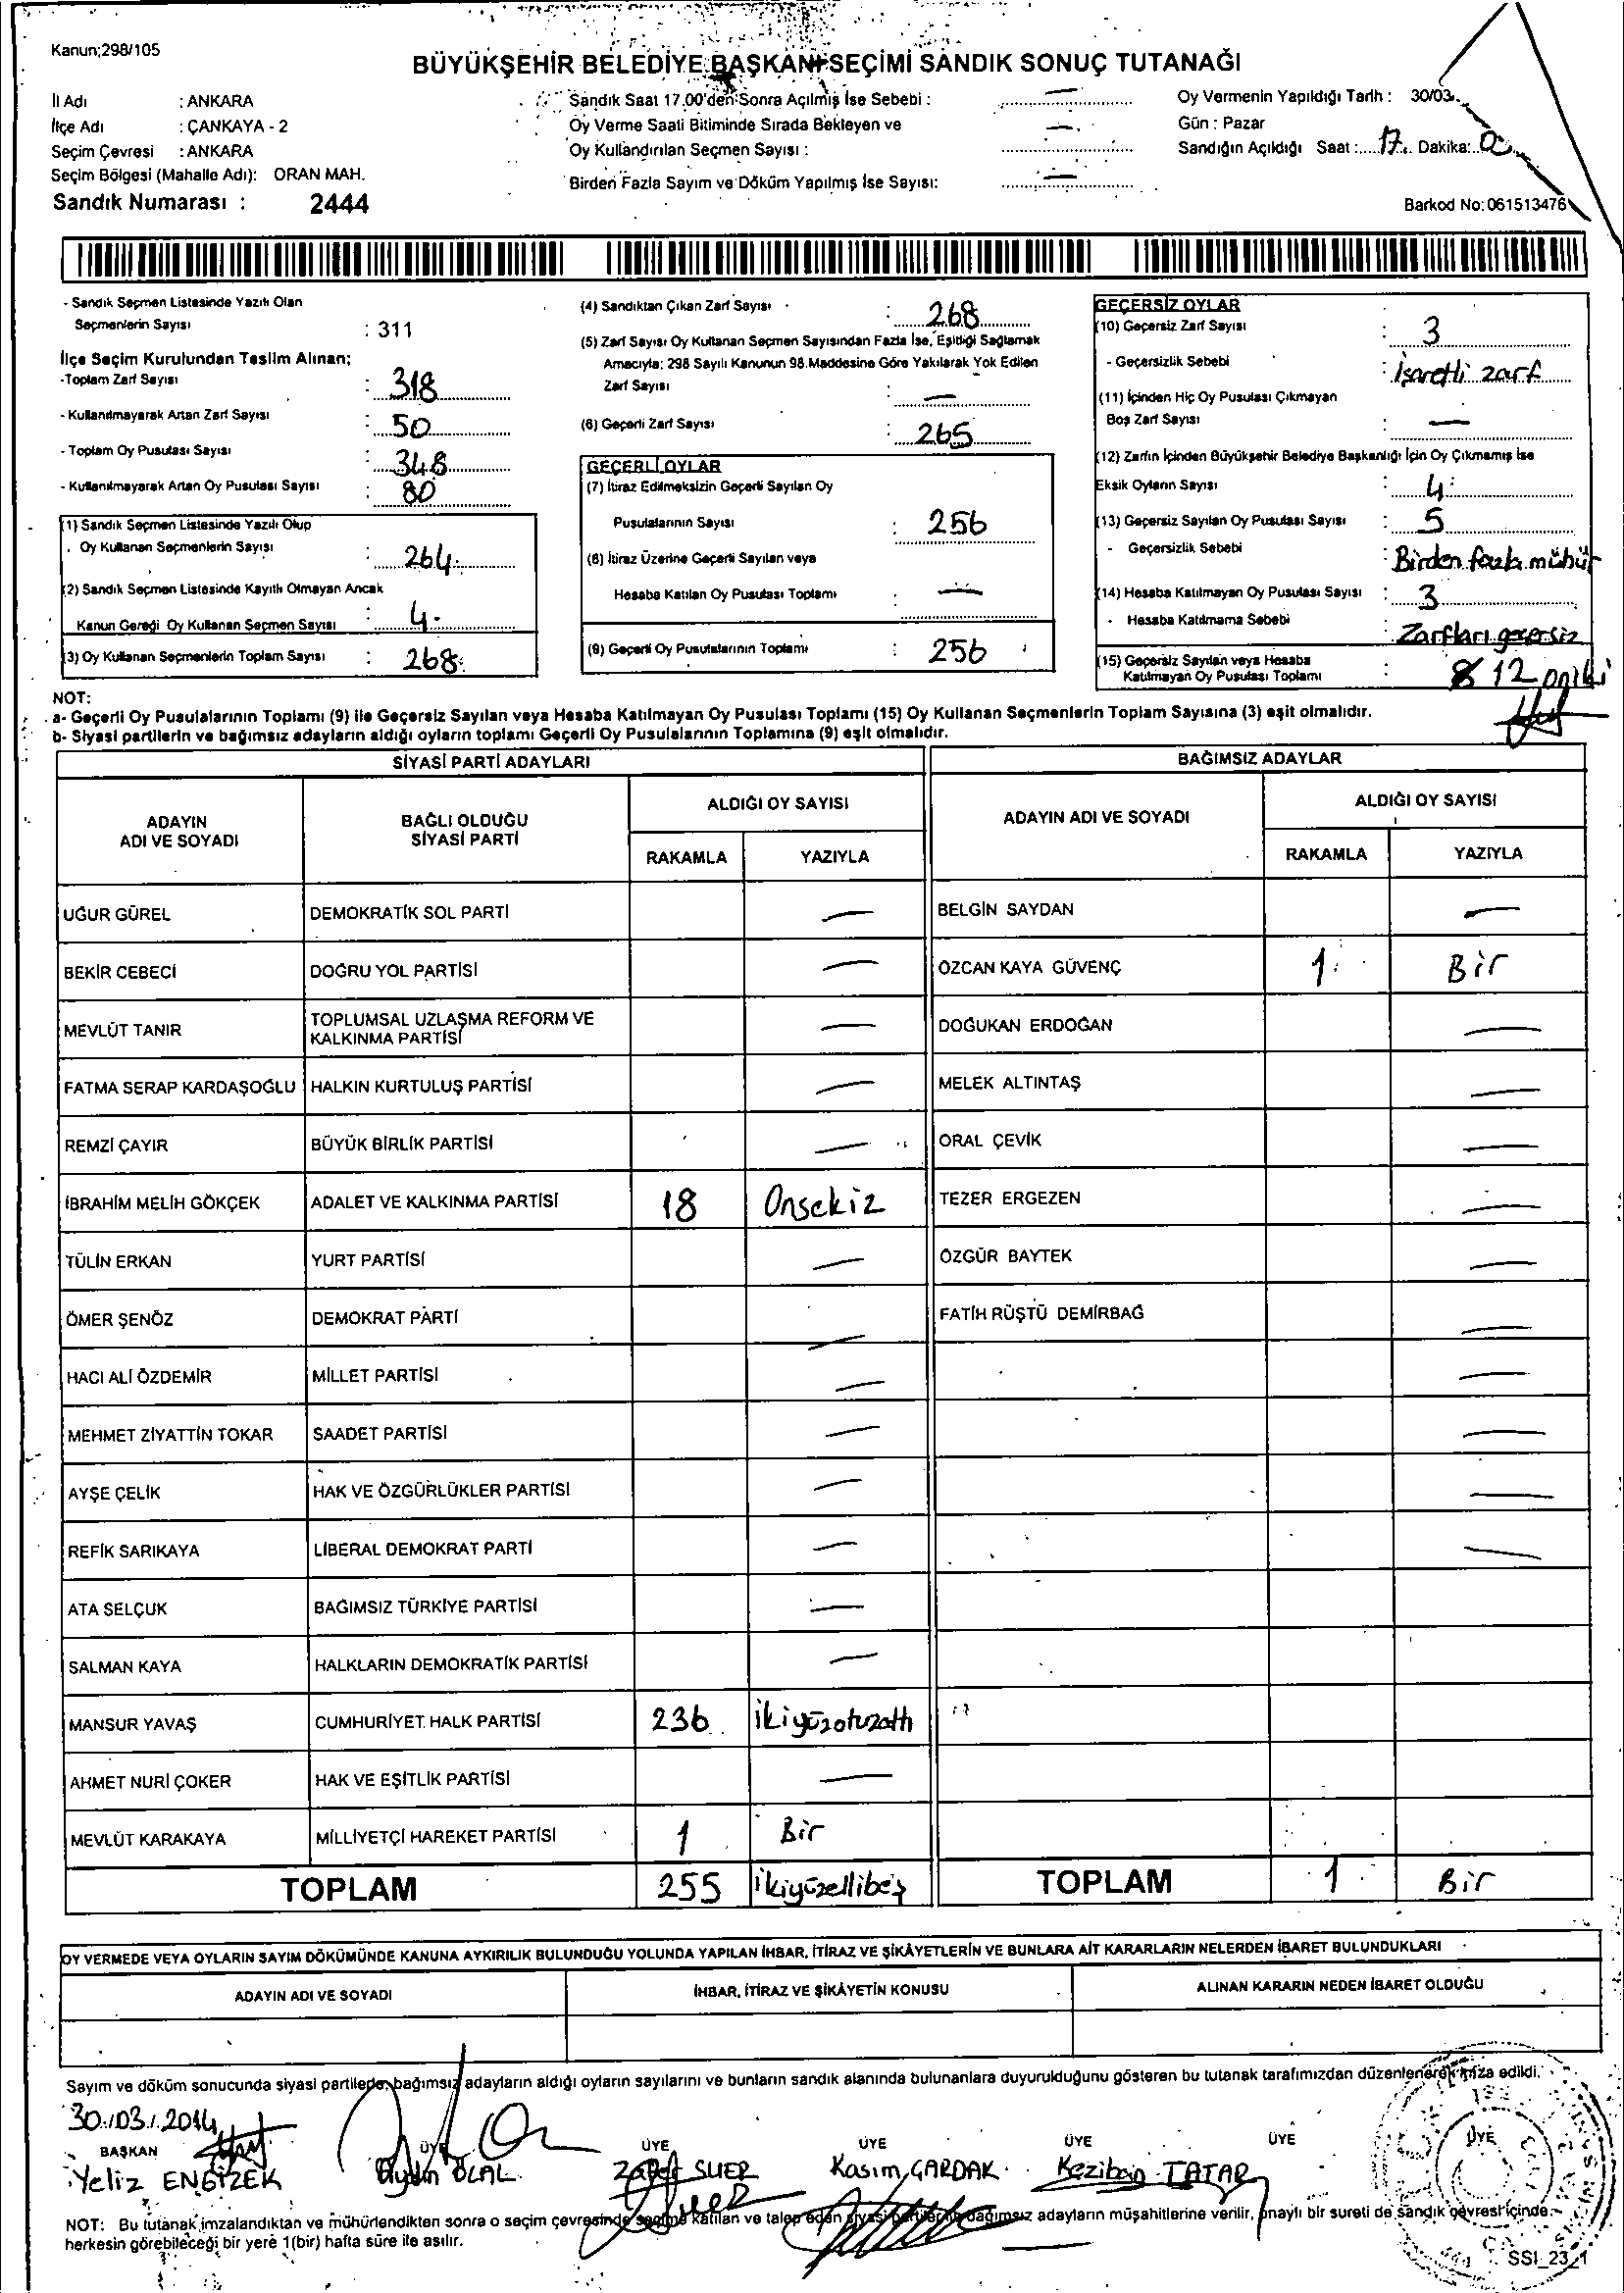 Kanun;298/105
BÜYÜKŞEHİR BELEDİYE BAŞKANI SEÇİMİ SANDIK SONUÇ TUTANAĞI
İl Adı : ANKARA
İlçe Adı : ÇANKAYA - 2
Seçim Çevresi : ANKARA
Seçim Bölgesi (Mahalle Adı): ORAN MAH.
Sandık Numarası : 2444
Sandık Saat 17.00'den Sonra Açılmış İse Sebebi : —
Oy Verme Saati Bitiminde Sırada Bekleyen ve —
Oy Kullandırılan Seçmen Sayısı :
Birden Fazla Sayım ve Döküm Yapılmış İse Sayısı: —
Oy Vermenin Yapıldığı Tarih : 30/03
Gün : Pazar
Sandığın Açıldığı Saat : 17 Dakika:
Barkod No: 061513476
- Sandık Seçmen Listesinde Yazılı Olan
Seçmenlerin Sayısı : 311
İlçe Seçim Kurulundan Teslim Alınan;
-Toplam Zarf Sayısı : 318
- Kullanılmayarak Artan Zarf Sayısı : 50
- Toplam Oy Pusulası Sayısı : 348
- Kullanılmayarak Artan Oy Pusulası Sayısı : 80
(1) Sandık Seçmen Listesinde Yazılı Olup
Oy Kullanan Seçmenlerin Sayısı : 264
(2) Sandık Seçmen Listesinde Kayıtlı Olmayan Ancak
Kanun Gereği Oy Kullanan Seçmen Sayısı : 4
(3) Oy Kullanan Seçmenlerin Toplam Sayısı : 268
(4) Sandıktan Çıkan Zarf Sayısı : 268
(5) Zarf Sayısı Oy Kullanan Seçmen Sayısından Fazla İse, Eşitliği Sağlamak
Amacıyla; 298 Sayılı Kanunun 98.Maddesine Göre Yakılarak Yok Edilen
Zarf Sayısı : —
(6) Geçerli Zarf Sayısı : 265
GEÇERLİ OYLAR
(7) İtiraz Edilmeksizin Geçerli Sayılan Oy
Pusulalarının Sayısı : 256
(8) İtiraz Üzerine Geçerli Sayılan veya
Hesaba Katılan Oy Pusulası Toplamı : —
(9) Geçerli Oy Pusulalarının Toplamı : 256
GEÇERSİZ OYLAR
(10) Geçersiz Zarf Sayısı : 3
- Geçersizlik Sebebi : İşaretli zarf
(11) İçinden Hiç Oy Pusulası Çıkmayan
Boş Zarf Sayısı : —
(12) Zarfın İçinden Büyükşehir Belediye Başkanlığı İçin Oy Çıkmamış İse
Eksik Oyların Sayısı : 4
(13) Geçersiz Sayılan Oy Pusulası Sayısı : 5
- Geçersizlik Sebebi : Birden fazla mühür
(14) Hesaba Katılmayan Oy Pusulası Sayısı : 3
- Hesaba Katılmama Sebebi : Zarfları geçersiz
(15) Geçersiz Sayılan veya Hesaba
Katılmayan Oy Pusulası Toplamı : 12 oniki
NOT:
a- Geçerli Oy Pusulalarının Toplamı (9) ile Geçersiz Sayılan veya Hesaba Katılmayan Oy Pusulası Toplamı (15) Oy Kullanan Seçmenlerin Toplam Sayısına (3) eşit olmalıdır.
b- Siyasi partilerin ve bağımsız adayların aldığı oyların toplamı Geçerli Oy Pusulalarının Toplamına (9) eşit olmalıdır.
SİYASİ PARTİ ADAYLARI BAĞIMSIZ ADAYLAR
ADAYIN ADI VE SOYADI BAĞLI OLDUĞU SİYASİ PARTİ ALDIĞI OY SAYISI ADAYIN ADI VE SOYADI ALDIĞI OY SAYISI
RAKAMLA YAZIYLA RAKAMLA YAZIYLA
UĞUR GÜREL DEMOKRATİK SOL PARTİ — BELGİN SAYDAN —
BEKİR CEBECİ DOĞRU YOL PARTİSİ — ÖZCAN KAYA GÜVENÇ 1 Bir
MEVLÜT TANIR TOPLUMSAL UZLAŞMA REFORM VE KALKINMA PARTİSİ — DOĞUKAN ERDOĞAN —
FATMA SERAP KARDAŞOĞLU HALKIN KURTULUŞ PARTİSİ — MELEK ALTINTAŞ —
REMZİ ÇAYIR BÜYÜK BİRLİK PARTİSİ — ORAL ÇEVİK —
İBRAHİM MELİH GÖKÇEK ADALET VE KALKINMA PARTİSİ 18 Onsekiz TEZER ERGEZEN —
TÜLİN ERKAN YURT PARTİSİ — ÖZGÜR BAYTEK —
ÖMER ŞENÖZ DEMOKRAT PARTİ — FATİH RÜŞTÜ DEMİRBAĞ —
HACI ALİ ÖZDEMİR MİLLET PARTİSİ — —
MEHMET ZİYATTİN TOKAR SAADET PARTİSİ — —
AYŞE ÇELİK HAK VE ÖZGÜRLÜKLER PARTİSİ — —
REFİK SARIKAYA LİBERAL DEMOKRAT PARTİ — —
ATA SELÇUK BAĞIMSIZ TÜRKİYE PARTİSİ —
SALMAN KAYA HALKLARIN DEMOKRATİK PARTİSİ —
MANSUR YAVAŞ CUMHURİYET HALK PARTİSİ 236 ikiyüzotuzaltı
AHMET NURİ ÇOKER HAK VE EŞİTLİK PARTİSİ —
MEVLÜT KARAKAYA MİLLİYETÇİ HAREKET PARTİSİ 1 Bir
TOPLAM 255 ikiyüzellibeş TOPLAM 1 Bir
OY VERMEDE VEYA OYLARIN SAYIM DÖKÜMÜNDE KANUNA AYKIRILIK BULUNDUĞU YOLUNDA YAPILAN İHBAR, İTİRAZ VE ŞİKÂYETLERİN VE BUNLARA AİT KARARLARIN NELERDEN İBARET BULUNDUKLARI
ADAYIN ADI VE SOYADI İHBAR, İTİRAZ VE ŞİKÂYETİN KONUSU ALINAN KARARIN NEDEN İBARET OLDUĞU
Sayım ve döküm sonucunda siyasi partilerin, bağımsız adayların aldığı oyların sayılarını ve bunların sandık alanında bulunanlara duyurulduğunu gösteren bu tutanak tarafımızdan düzenlenerek imza edildi.
30/03/2014
BAŞKAN ÜYE ÜYE ÜYE ÜYE ÜYE ÜYE
Yeliz ENGİZEK Aydın Zafer SUER Kasım ÇARDAK Keziban TATAR
NOT: Bu tutanak imzalandıktan ve mühürlendikten sonra o seçim çevresinde seçime katılan ve talep eden siyasi partilerin, bağımsız adayların müşahitlerine verilir, onaylı bir sureti de sandık çevresi içinde
herkesin görebileceği bir yere 1(bir) hafta süre ile asılır.
SSI_23_1